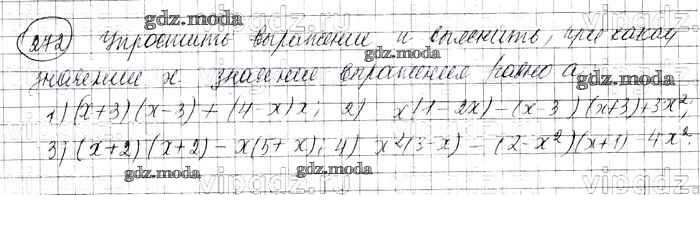 gdz.moda
272 Упростить выражение и выяснить, при каком
gdz.moda
значении x значение выражения равно a
gdz.moda
1) (x+3)(x-3)+(4-x)x; 2) x(1-2x)-(x-3)(x+3)+3x²;
gdz.moda
3) (x+2)(x+2)-x(5+x); 4) x²(3-x)-(2-x²)(x+1) 4x².
gdz.moda gdz.moda
vipgdz.ru vipgdz